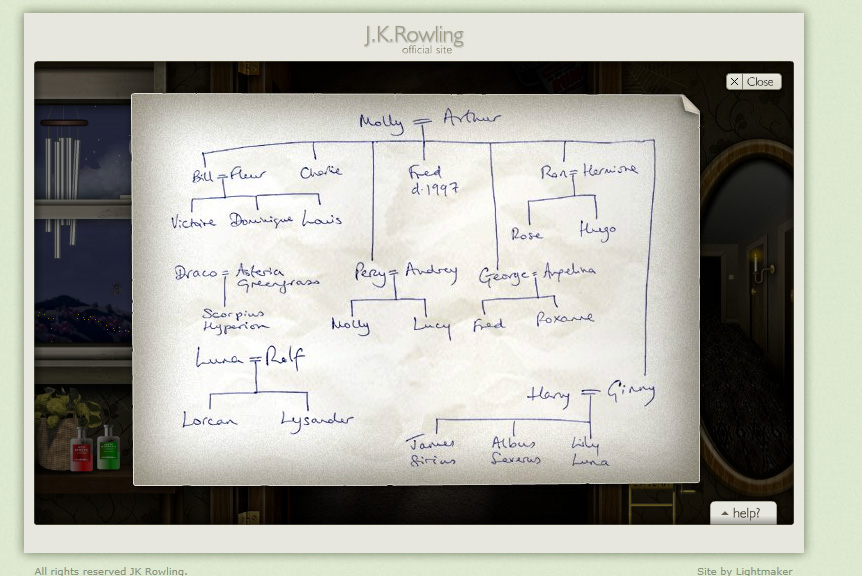 J.K.Rowling
official site
× Close
Molly = Arthur
Bill = Fleur Charlie Fred Ron = Hermione
d.1997
Victoire Dominique Louis Rose Hugo
Draco = Asteria Percy = Audrey George = Angelina
Greengrass
Scorpius
Hyperion Molly Lucy Fred Roxanne
Luna = Rolf
Harry = Ginny
Lorcan Lysander
James Albus Lily
Sirius Severus Luna
help?
All rights reserved JK Rowling. Site by Lightmaker